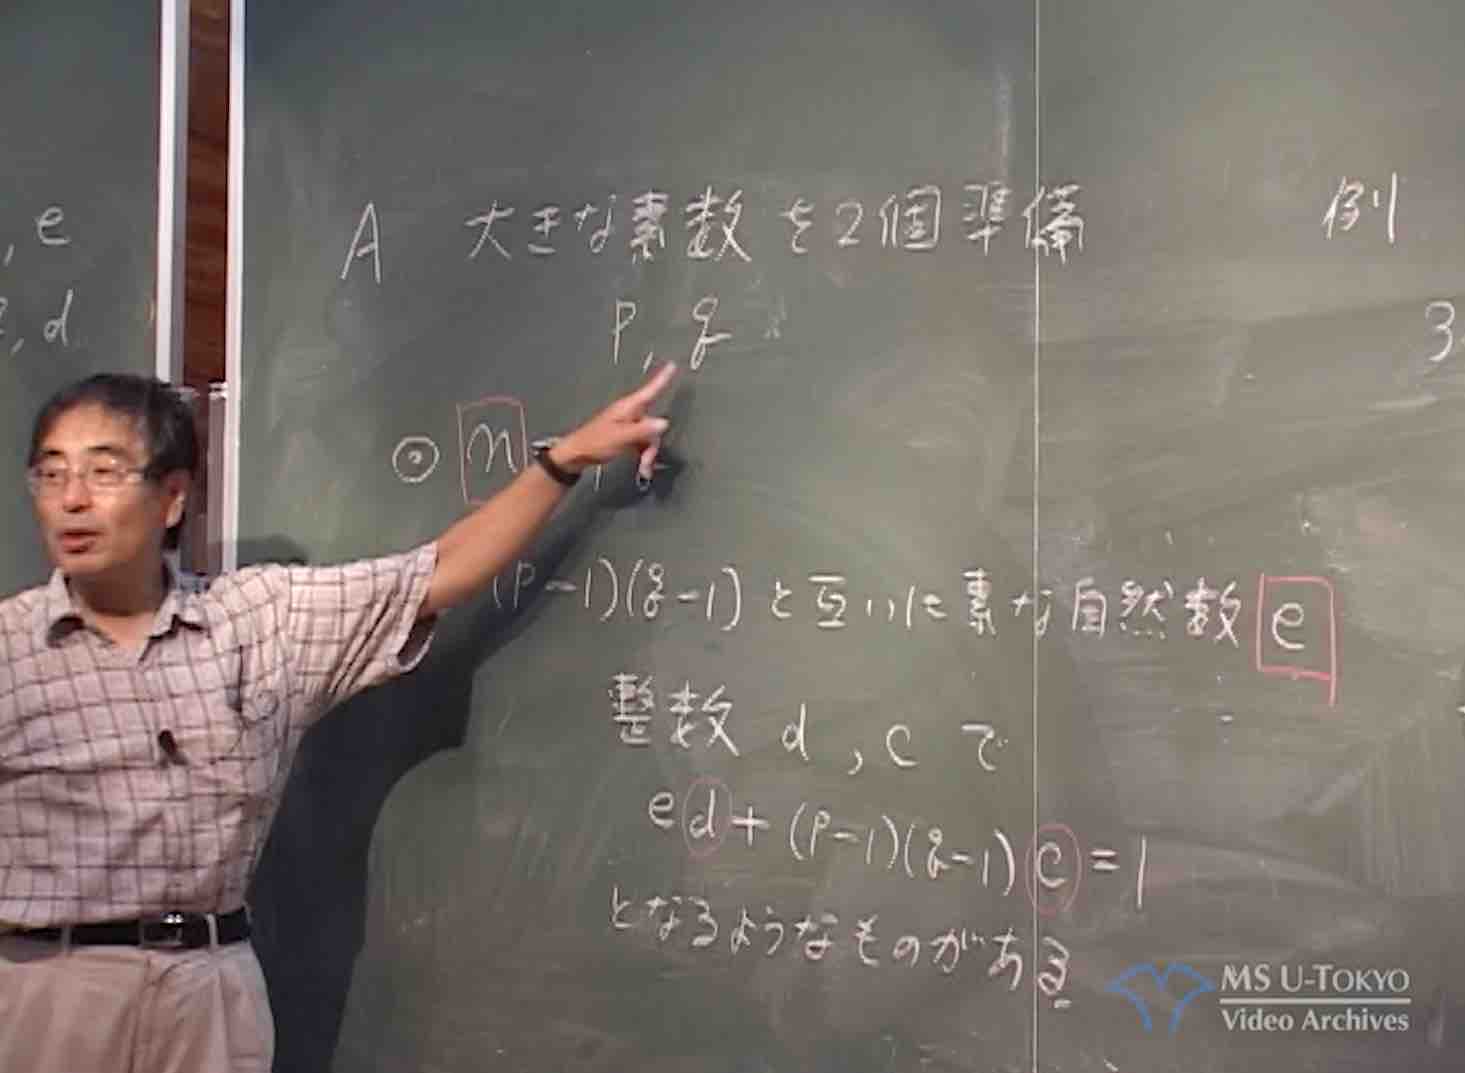 , e
, d
A 大きな素数を2個準備
p, q
⊙ n =
(p-1)(q-1)と互いに素な自然数 e
整数 d, c で
ed + (p-1)(q-1)c = 1
となるようなものがある
例
3
MS U-TOKYO
Video Archives